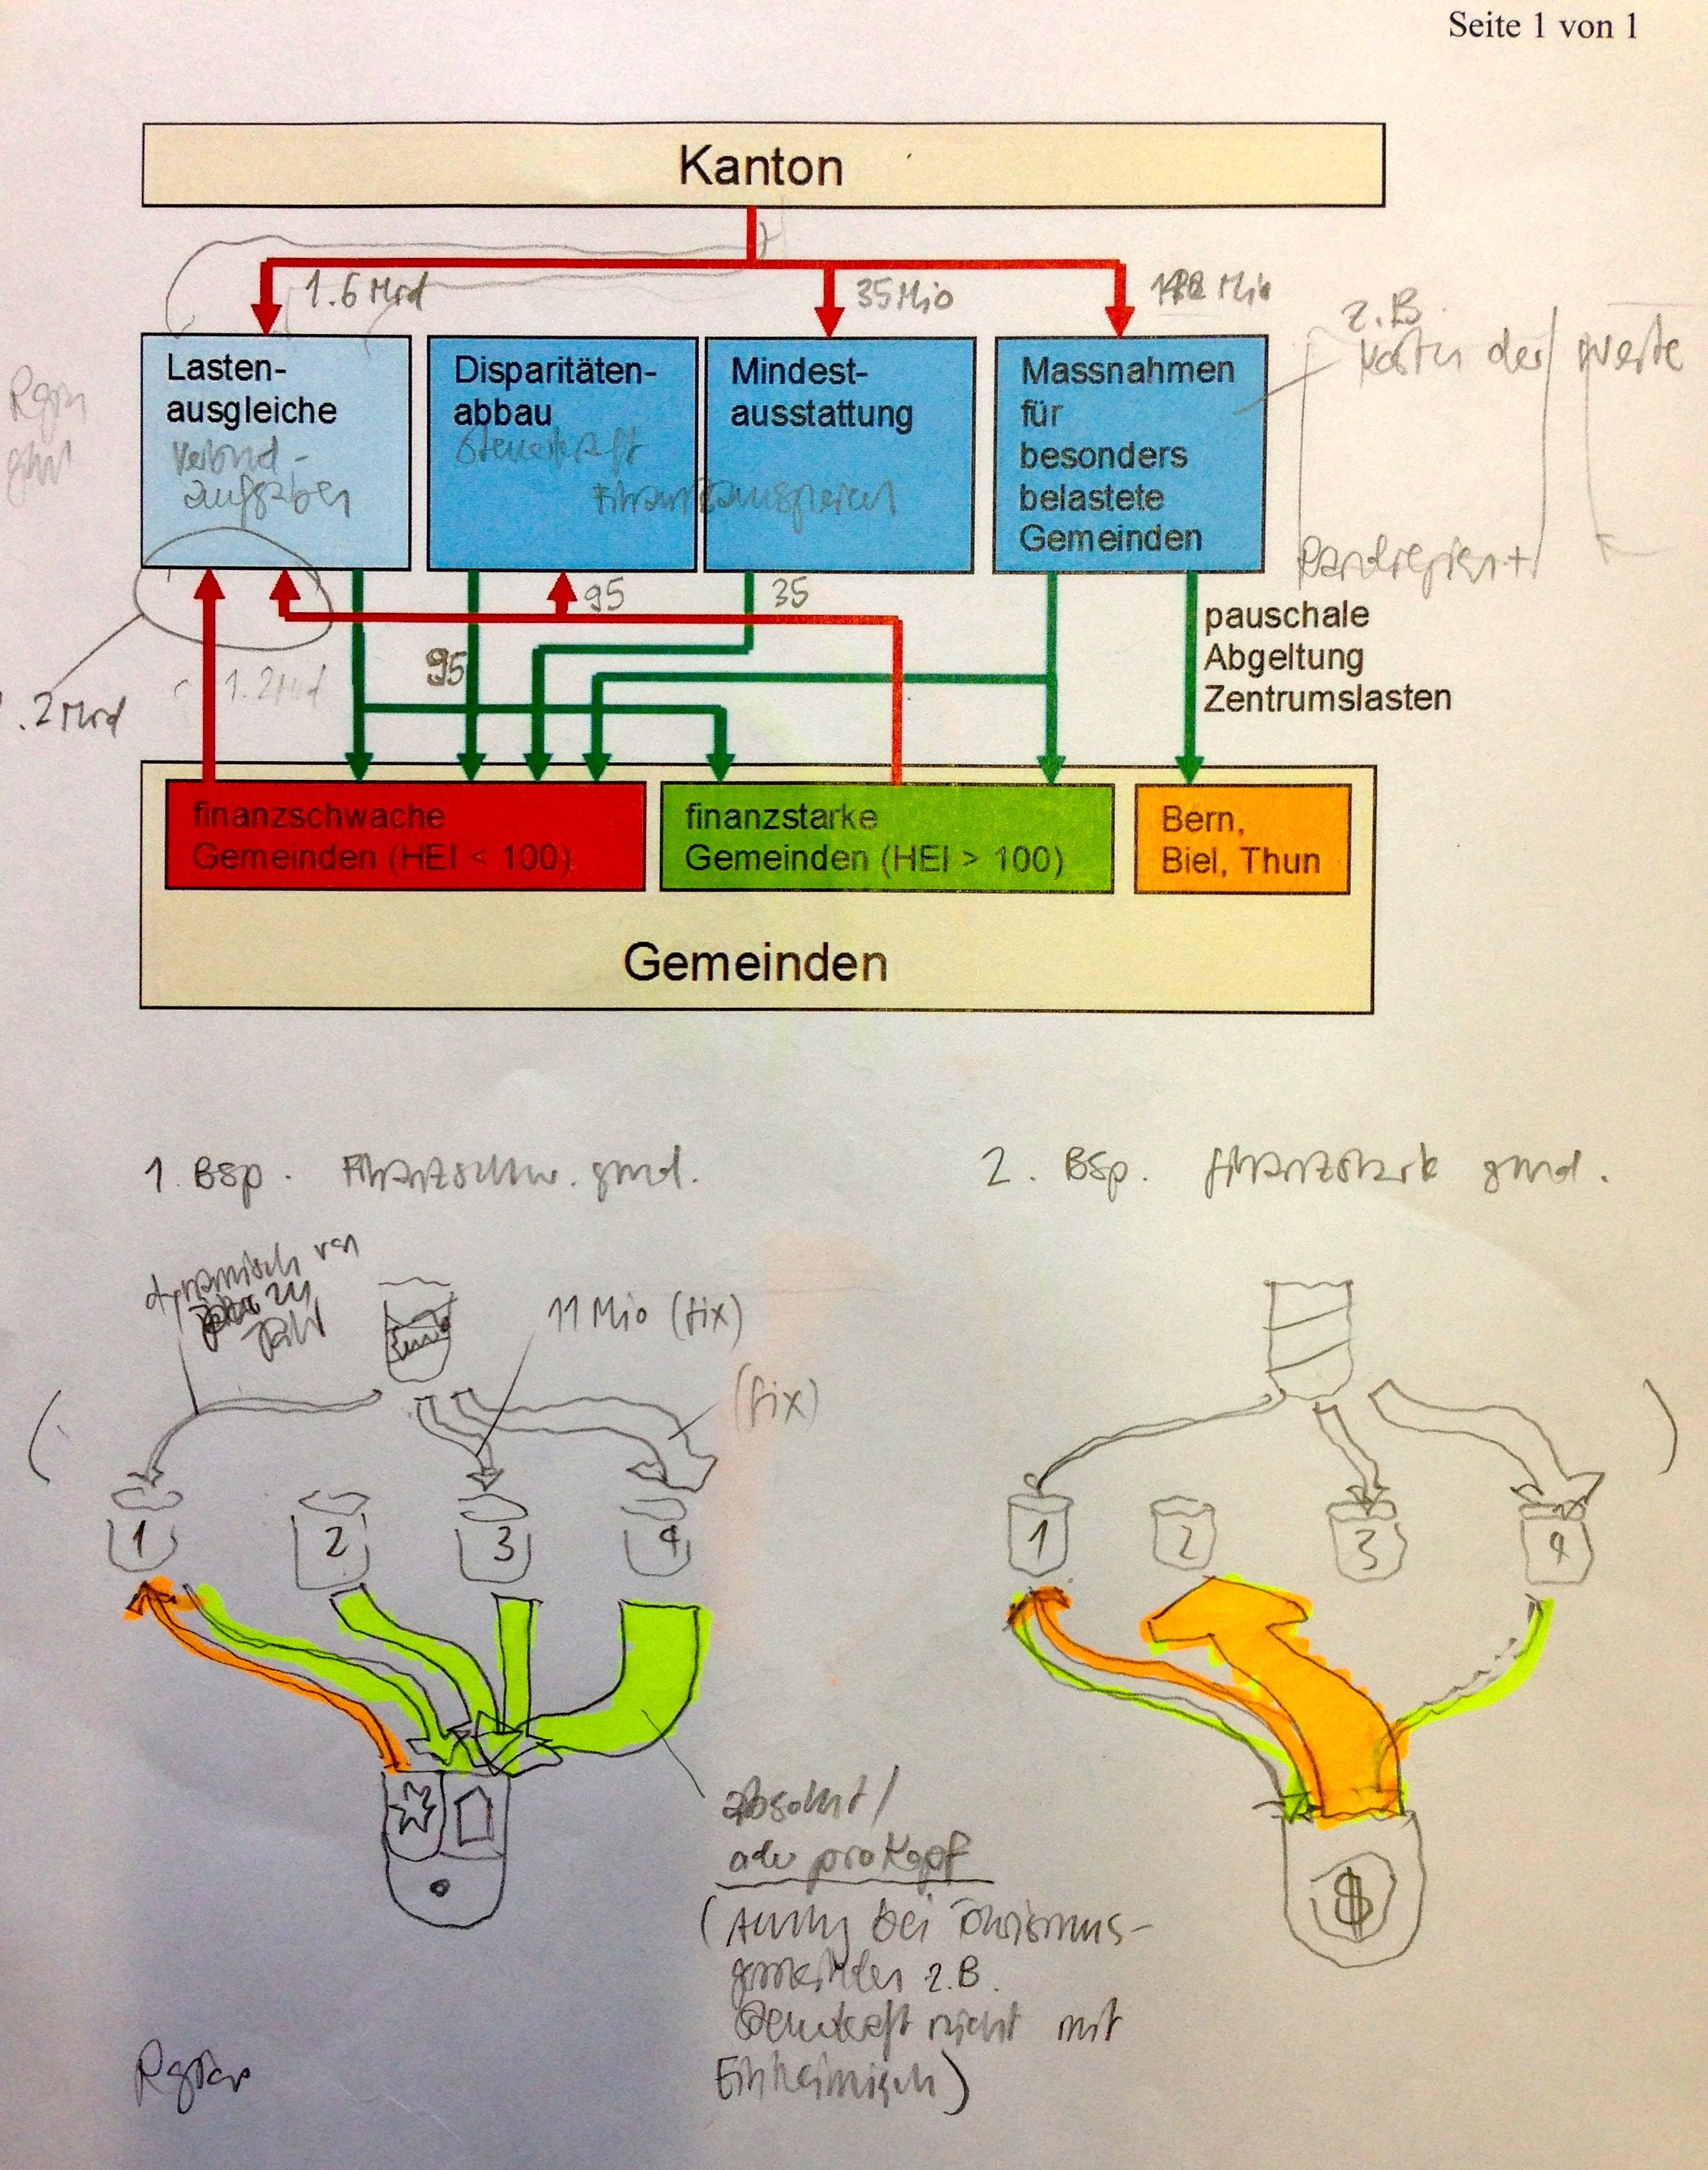 Seite 1 von 1
Kanton
1.6 Mrd
35 Mio
Mio
z.B.
der
Lasten-
ausgleiche
Verbund-
aufgaben
Disparitäten-
abbau
Steuerkraft
Finanzausgleich
Mindest-
ausstattung
Massnahmen
für
besonders
belastete
Gemeinden
95
35
pauschale
Abgeltung
Zentrumslasten
95
1.2 Mrd
.2 Mrd
finanzschwache
Gemeinden (HEI < 100)
finanzstarke
Gemeinden (HEI > 100)
Bern,
Biel, Thun
Gemeinden
1. Bsp. Finanzschw. gmd.
2. Bsp. finanzstark gmd.
dynamisch von
zu
Jahr
11 Mio (fix)
(fix)
1
2
3
4
1
2
3
4
$
absolut/
oder pro Kopf
bei Tourismus-
gemeinden z.B.
Steuerkraft nicht mit
Einheimisch)